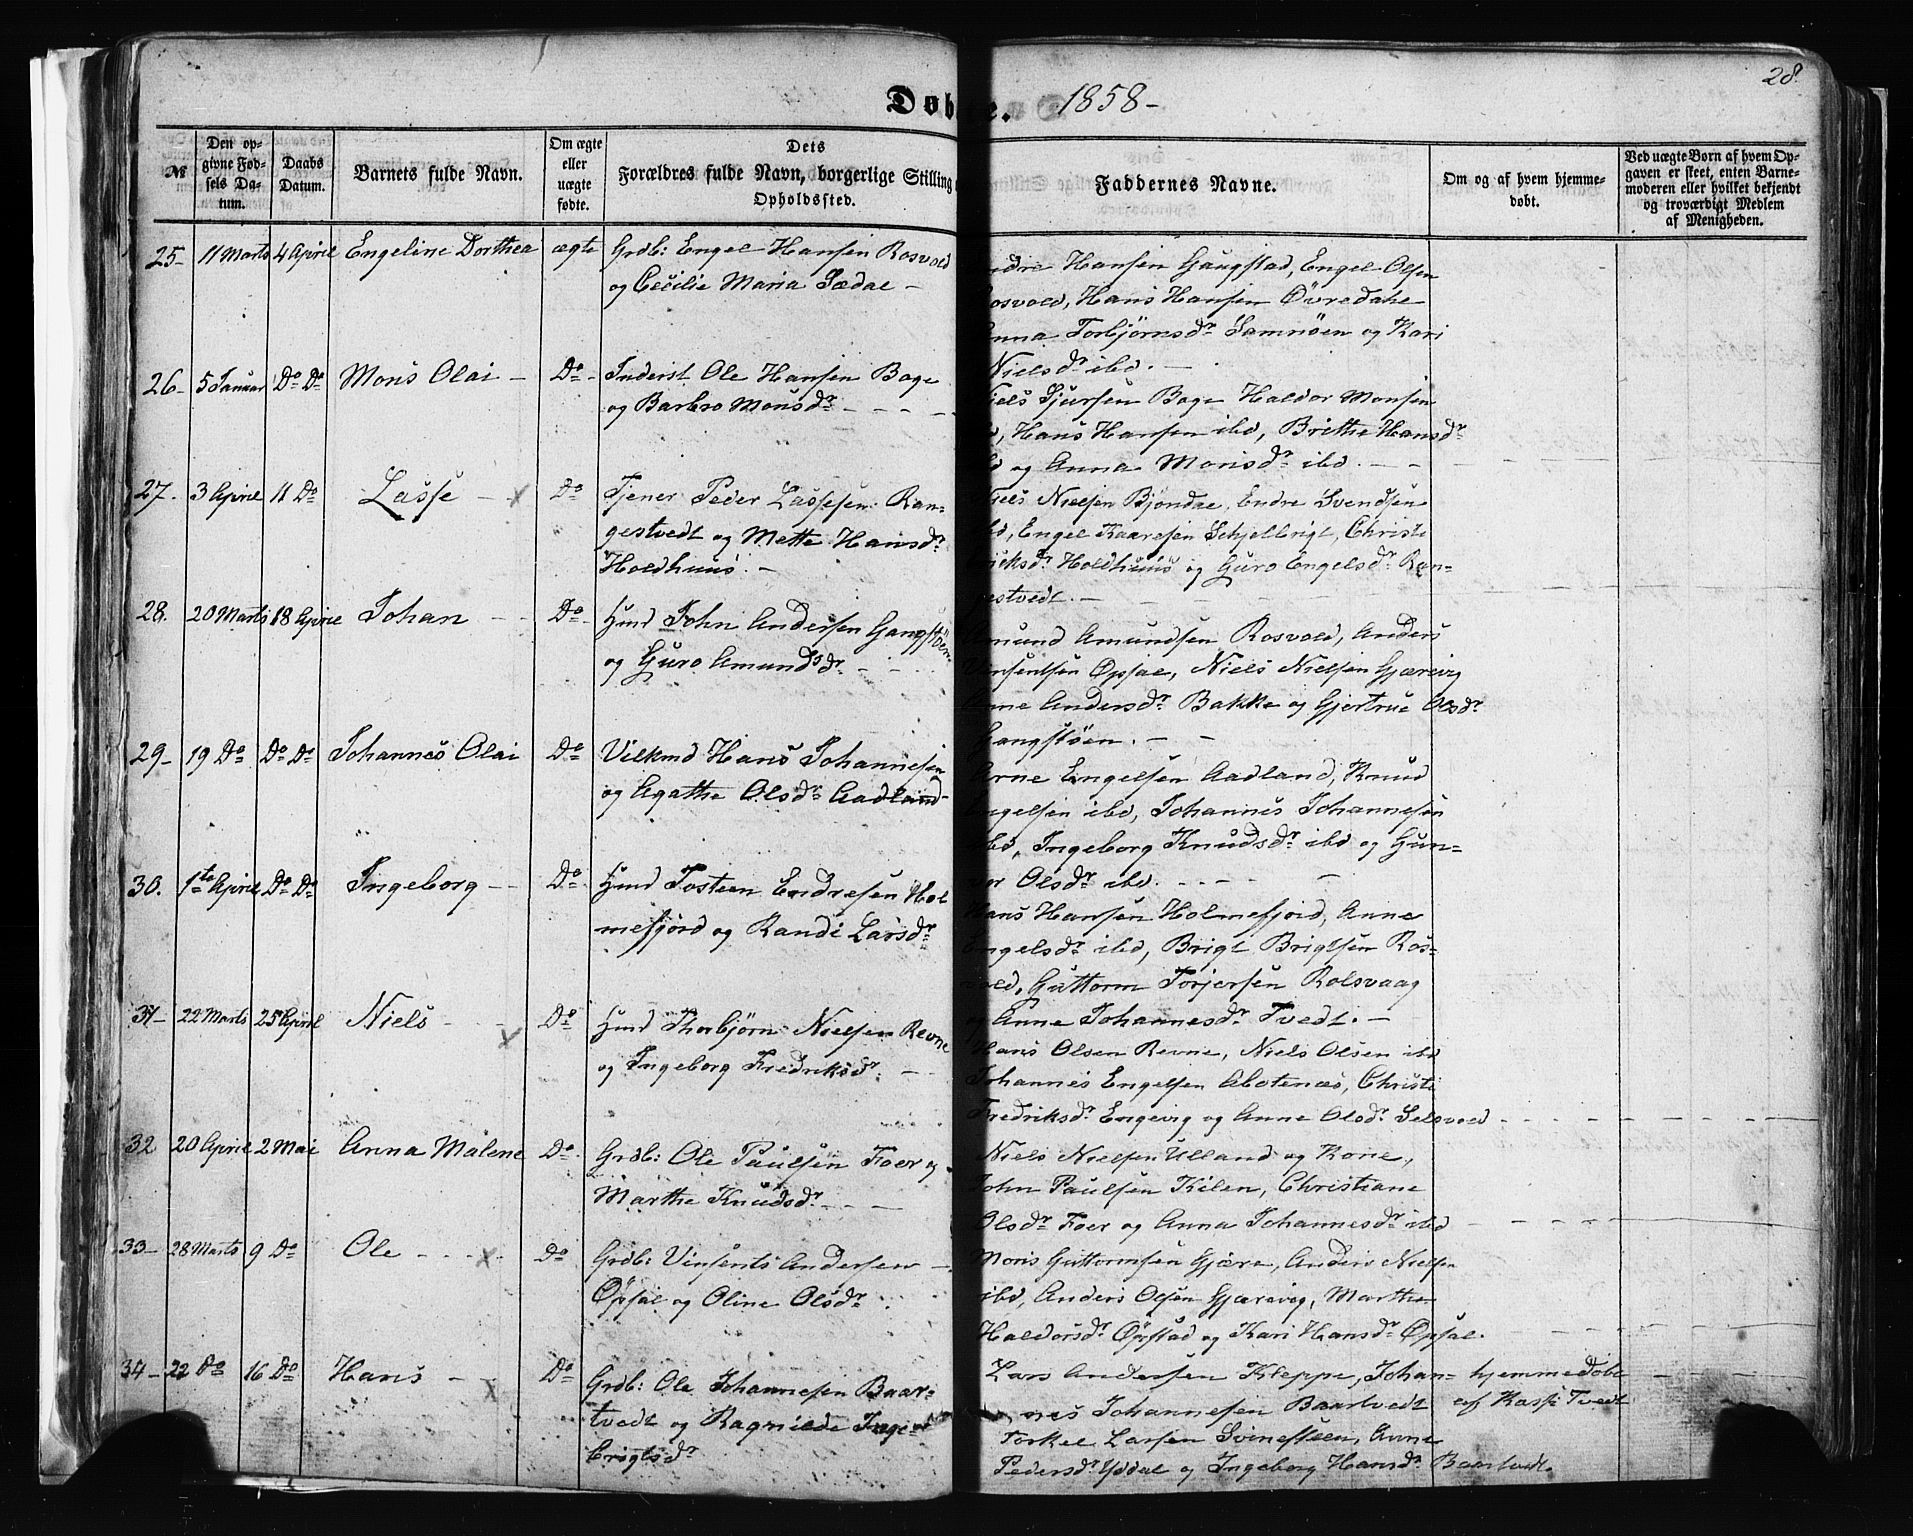 28.
Døbte. 1858-
№
Den opgivne Fødsels Datum.
Daabs Datum.
Barnets fulde Navn.
Om ægte eller uægte fødte.
Dets Forældres fulde Navn, borgerlige Stilling Opholdssted.
Faddernes Navne.
Om og af hvem hjemmedøbt.
Ved uægte Børn af hvem Opgaven er skeet, enten Barnemoderen eller hvilket bekjendt og troværdigt Medlem af Menigheden.
25- 11 Marts 4 April Engeline Dorthea ægte Grdb: Engel Hansen Rosvold
og Cecilie Maria Sædal -
Hansen Gaugstad, Engel Olsen
Rosvold, Hans Hansen Øvredahl
Anna Torbjørnsdr Samnøen og Kari
Nielsdr ibd. -
26- 5 Januar Do Do Mons Olai - Do- Inderst Ole Hansen Boge
og Barbro Monsdr - - -
Niels Sjursen Boge Haldor Monsen
Hans Hansen ibd, Brithe Hansdr
og Anna Monsdr ibd. - -
27. 3 April 11 Do Lasse - x Do Tjener Peder Lassesen Ran-
gestvedt og Mette Hansdr
Holdhuus. -
Niels Nielsen Bjøndal, Endre Svendsen
ibd, Engel Kaaresen Schjelbrigt, Christi
Holdhuus og Guro Engelsdr Ran-
gestvedt. -
28. 20 Marts 18 April Johan - - Do- Hmd John Andersen Gangstøen
og Guro Amundsdr - -
Amund Amundsen Rosvold, Anders
Vinsentsen Opsal, Niels Nielsen Gjærevig
Anne Andersdr Bakke og Gjertrue Olsdr
Gangstøen. - -
29- 19 Do Do Do Johannes Olai Do Hans Johannesen
og Agathe Olsdr Aadland-
Arne Engelsen Aadland, Knud
Engelsen ibd, Johannes Johannesen
ibd, Ingeborg Knudsdr ibd og Gun-
vor Olsdr ibd. - - - -
30. 1ste April Do Do Ingeborg - - Do- Hmd Tosteen Endresen Hol
mefjord og Randi Larsdr
Hans Hansen Holmefjord, Anne
Engelsdr ibd, Brigt Brigtsen Ros-
vold, Guttorm Torjersen Rolsvaag
og Anne Johannesdr Tvedt. -
31- 22 Marts 25 April Niels - - x Do Hmd Thorbjørn Nielsen Revne
og Ingeborg Fredriksdr. -
Hans Olsen Revne, Niels Olsen ibd
Johannes Engelsen Abotenæs, Christi
Fredriksdr Engevig og Anne Olsdr Selsvold
32 20 April 2 Mai Anna Malene Do- Grdb: Ole Paulsen Foer og
Marthe Knudsdr - - -
Niels Nielsen Ulland og Kone,
John Paulsen Kilen, Christiane
Olsdr Foer og Anna Johannesdr ibd
33- 28 Marts 9 Do Ole - - - x Do Grdb: Vinsents Andersen -
Opsal og Oline Olsdr.
Mons Guttormsen Gjære, Anders Nielsen
ibd, Anders Olsen Gjærevig, Marthe
Haldorsdr Opstad og Kari Hansdr Opsal.
34- 22 Do 16 Do Hans - - x Do Grdb: Ole Johannesen Baar-
tvedt og Ragnilde Inge-
brigtsdr
Lars Andersen Kleppe, Johan-
nes Johannesen Baartvedt
Torkel Larsen Svinesteen, Anne
Pedersdr Yddal og Ingeborg Hansdr Baartvedt.
hjemmedøbt
af Tvedt